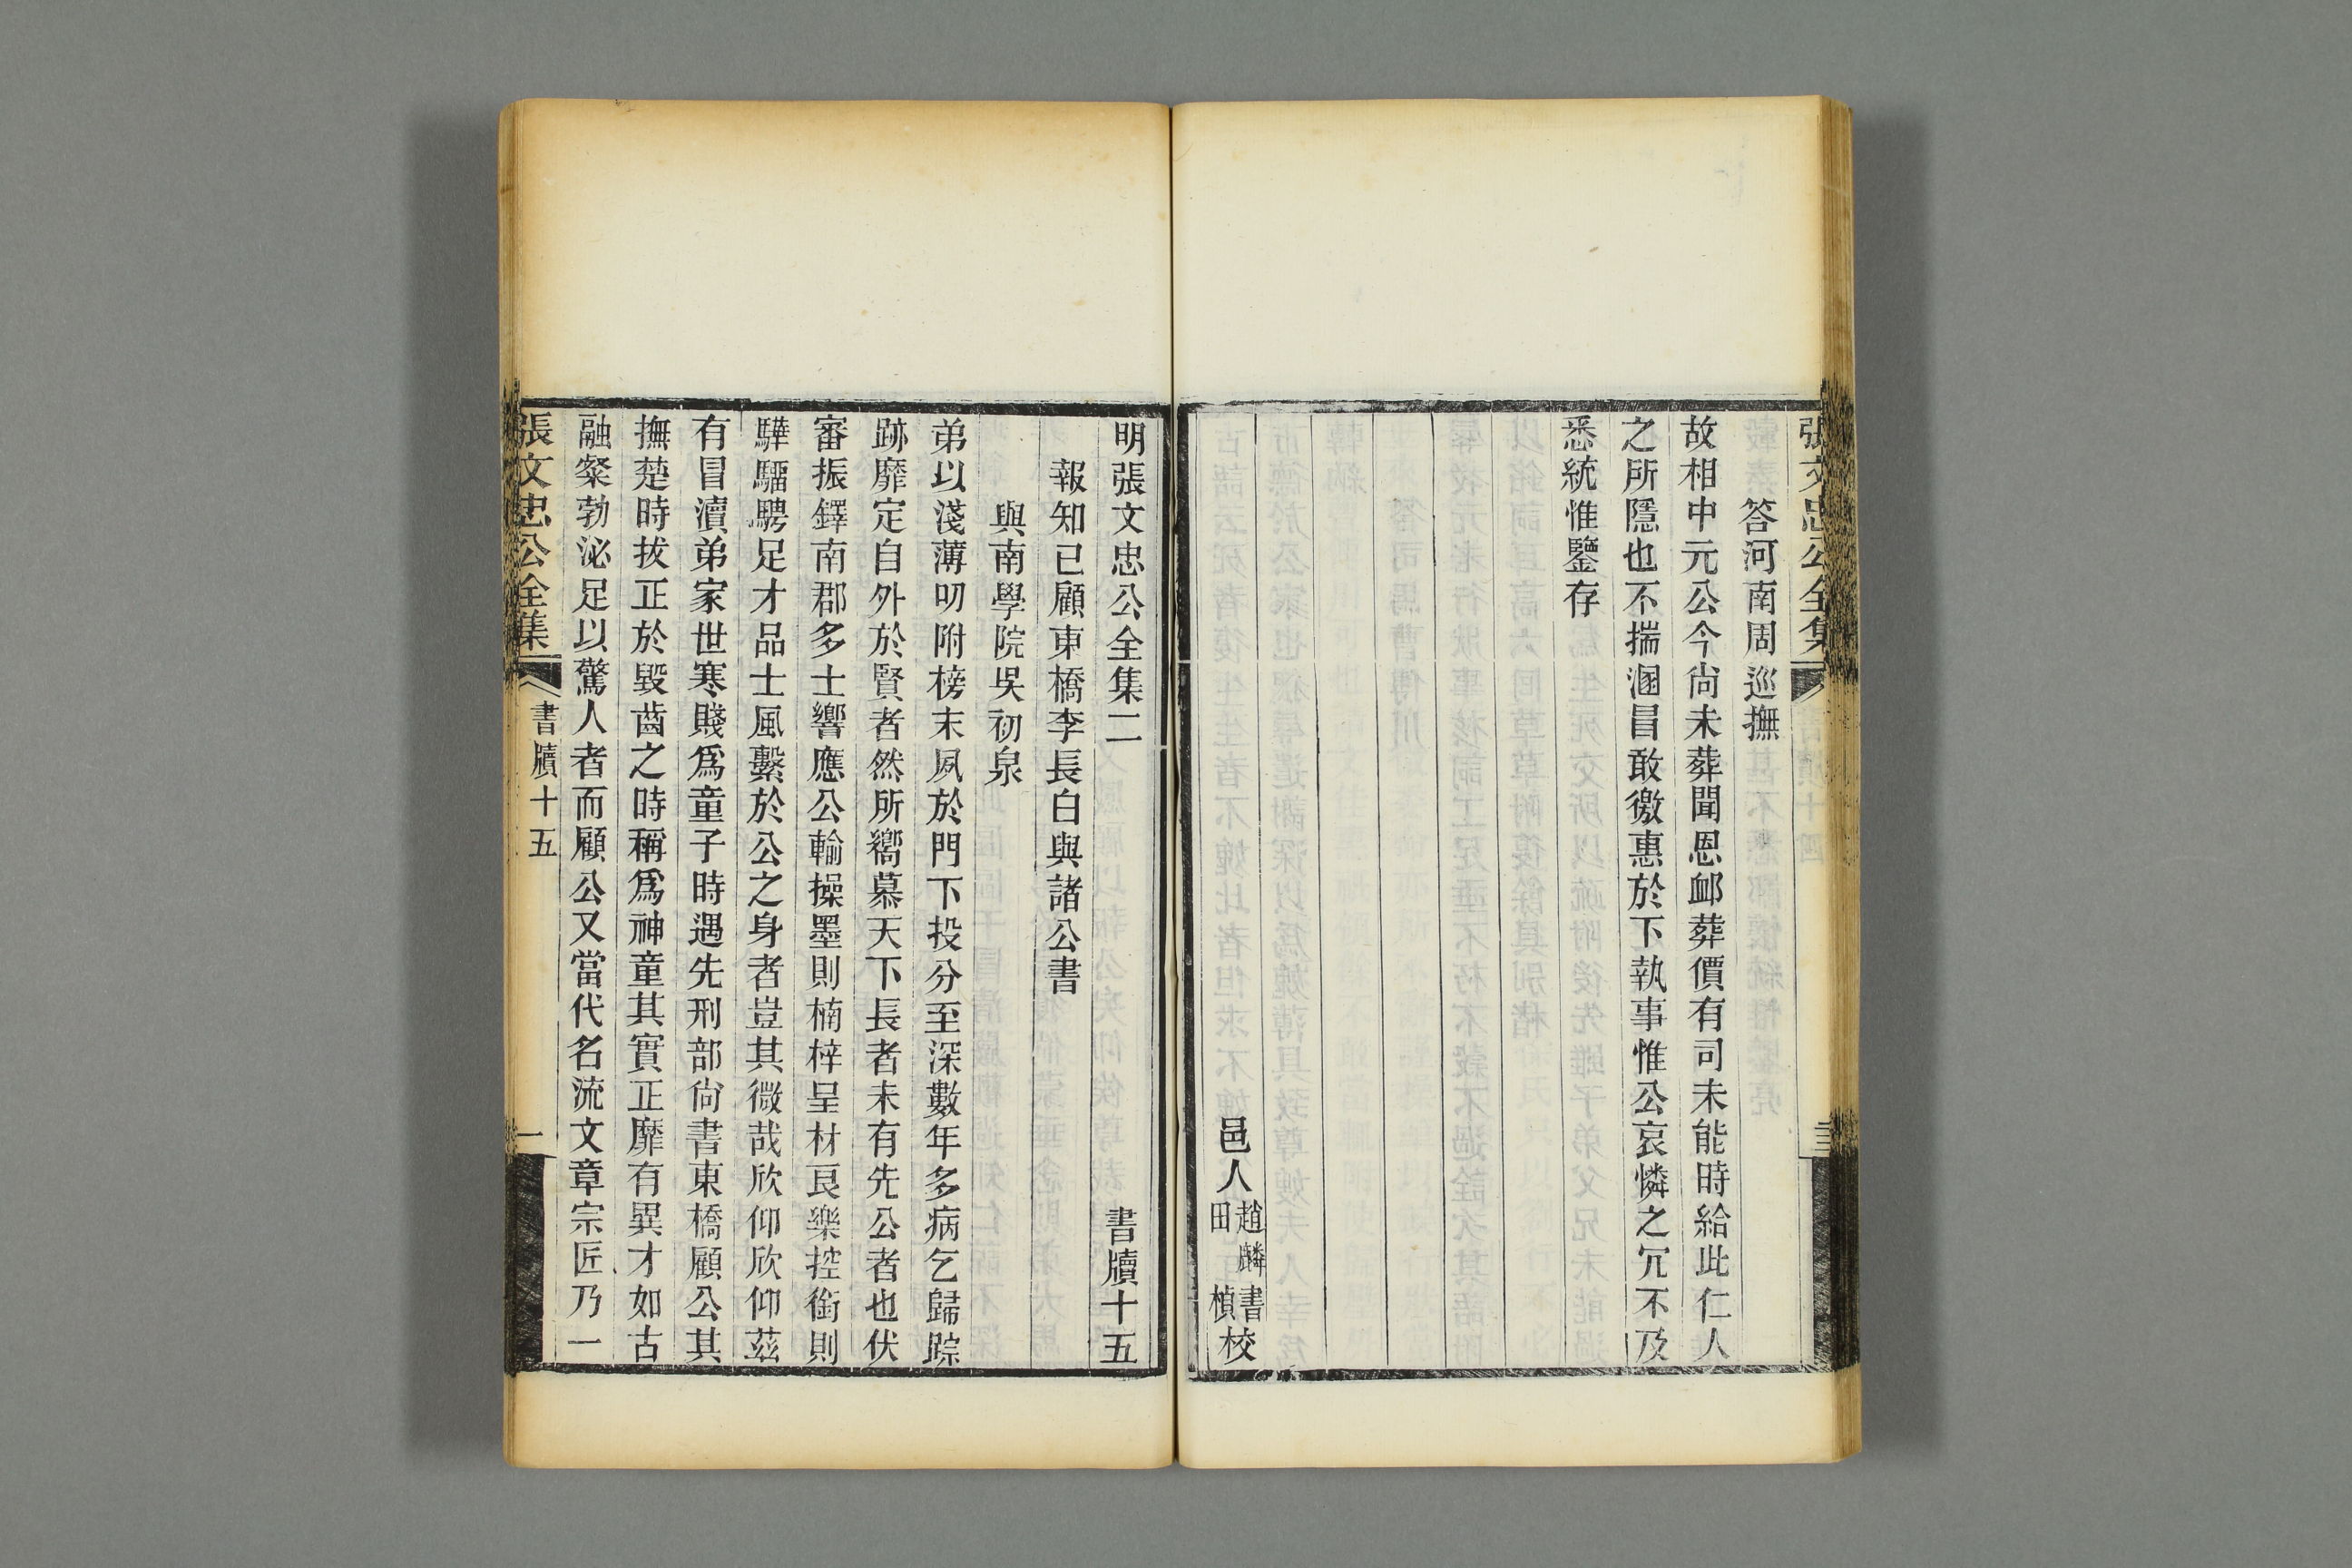 張文忠公全集
答河南周巡撫
故相中元公今尙未葬聞恩䘏葬價有司未能時給此仁人
之所隱也不揣溷冒敢徼惠於下執事惟公哀憐之冗不及
悉統惟鑒存
邑人趙麟書田楨校
明張文忠公全集二 書牘十五
報知已顧東橋李長白與諸公書
與南學院吳初泉
弟以淺薄叨附榜末夙於門下投分至深數年多病乞歸踪
跡靡定自外於賢者然所嚮慕天下長者未有先公者也伏
審振鐸南郡多士響應公輸操墨則楠梓呈材良樂控銜則
驊騮騁足才品士風繫於公之身者豈其微哉欣仰欣仰茲
有冒瀆弟家世寒賤爲童子時遇先刑部尙書東橋顧公其
撫楚時拔正於毀齒之時稱爲神童其實正靡有異才如古
融粲勃泌足以驚人者而顧公又當代名流文章宗匠乃一
張文忠公全集 書牘十五 一